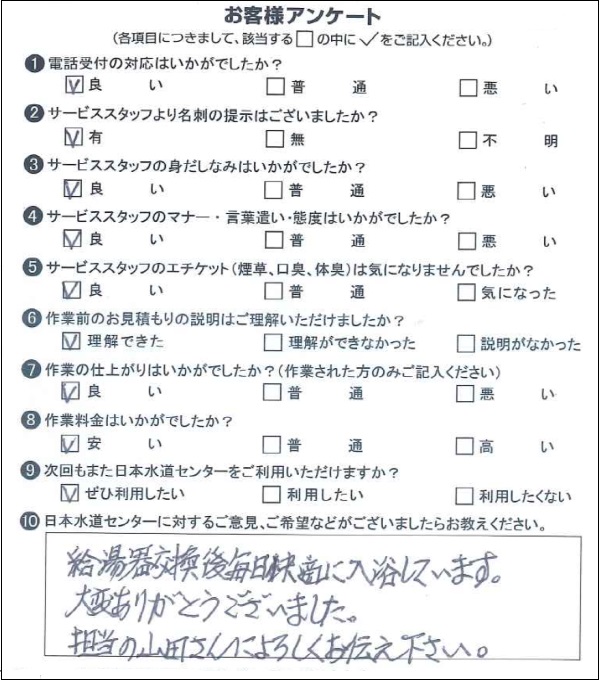 お客様アンケート
(各項目につきまして、該当する□の中に✓をご記入ください。)
❶ 電話受付の対応はいかがでしたか?
☑ 良い □ 普通 □ 悪い
❷ サービススタッフより名刺の提示はございましたか?
☑ 有 □ 無 □ 不明
❸ サービススタッフの身だしなみはいかがでしたか?
☑ 良い □ 普通 □ 悪い
❹ サービススタッフのマナー・言葉遣い・態度はいかがでしたか?
☑ 良い □ 普通 □ 悪い
❺ サービススタッフのエチケット(煙草、口臭、体臭)は気になりませんでしたか?
☑ 良い □ 普通 □ 気になった
❻ 作業前のお見積もりの説明はご理解いただけましたか?
☑ 理解できた □ 理解ができなかった □ 説明がなかった
❼ 作業の仕上がりはいかがでしたか?(作業された方のみご記入ください)
☑ 良い □ 普通 □ 悪い
❽ 作業料金はいかがでしたか?
☑ 安い □ 普通 □ 高い
❾ 次回もまた日本水道センターをご利用いただけますか?
☑ ぜひ利用したい □ 利用したい □ 利用したくない
❿ 日本水道センターに対するご意見、ご希望などがございましたらお教えください。
給湯器交換後毎日快適に入浴しています。
大変ありがとうございました。
担当の山田さんによろしくお伝え下さい。